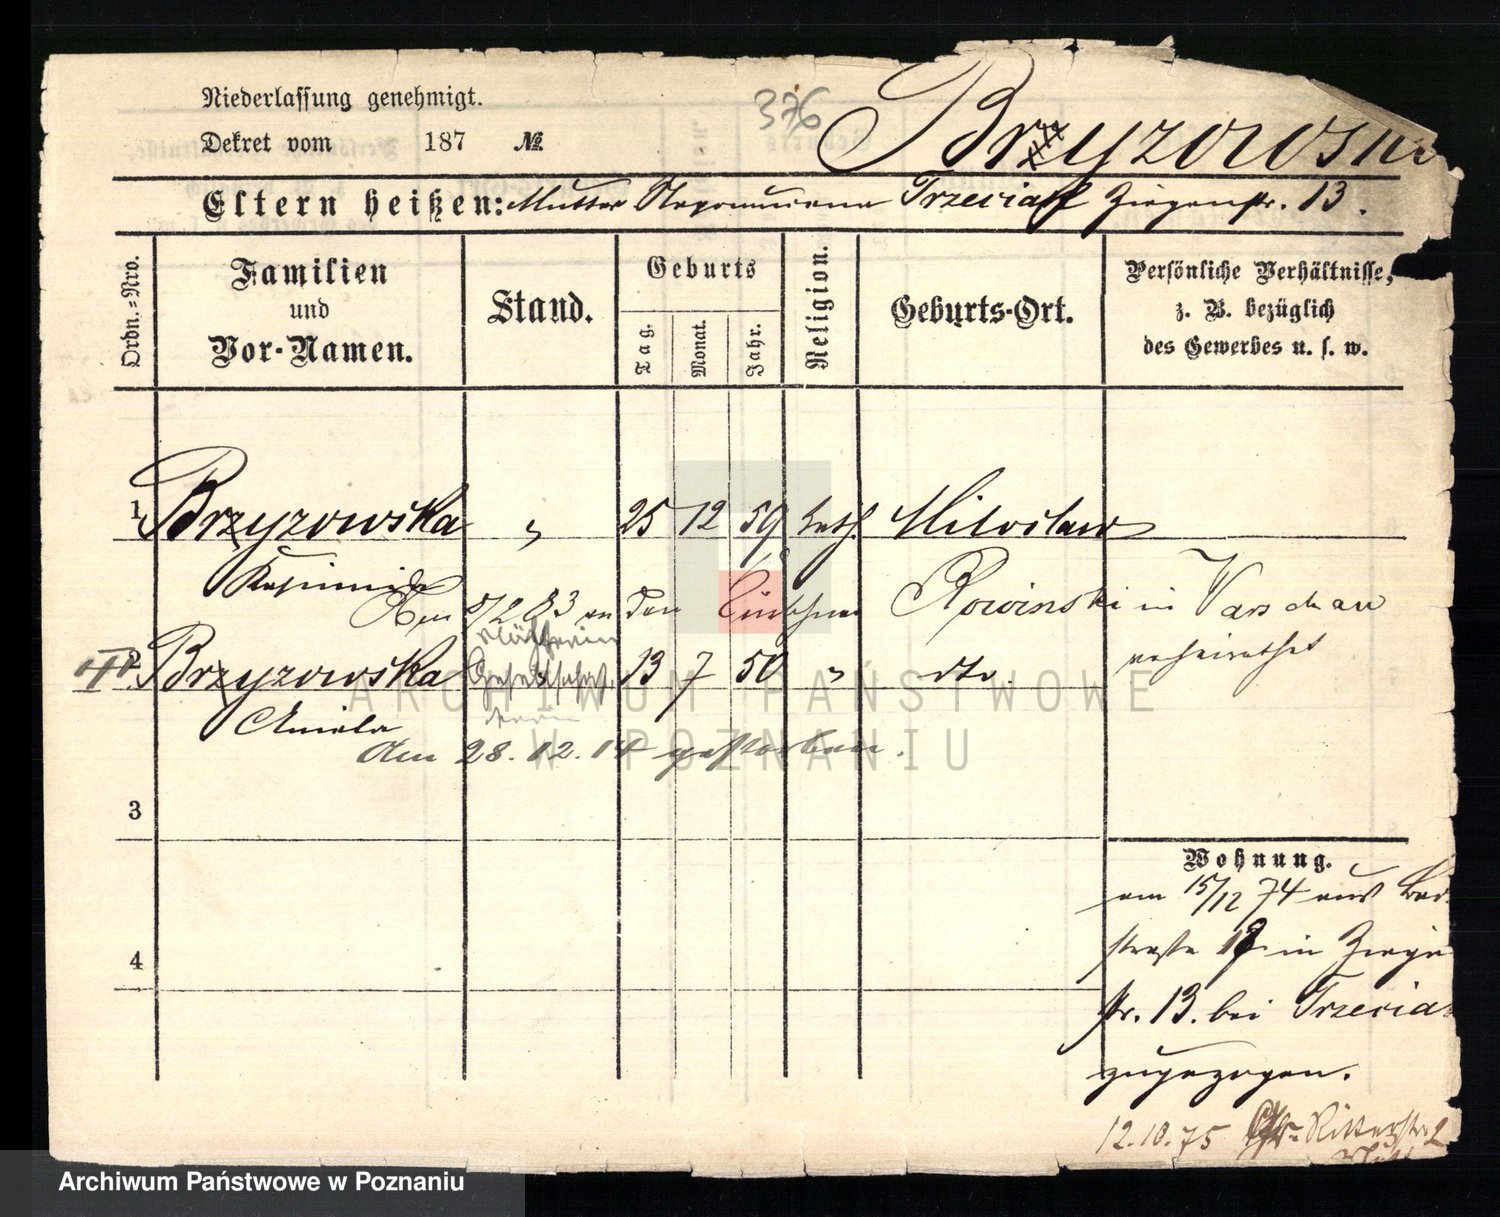 Niederlassung genehmigt.
376
Dekret vom 187 №
Brzyzowski
Eltern heißen: Mutter Nepomucena Trzeciak Ziegenstr. 13.
Ordn.-Nro.
Familien und Vor-Namen.
Stand.
Geburts
Tag.
Monat.
Jahr.
Religion.
Geburts-Ort.
Persönliche Verhältnisse,
z. B. bezüglich
des Gewerbes u. s. w.
1 Brzyzowska " 25 12 59 kath. Miloslaw
Kasimira
Am 8/2 83 an den Rowinski in Warschau
verheirathet
2 Brzyzowska 13 7 50 " dto.
Aniela
Am 28.12.14 gestorben.
3
4
Wohnung.
am 15/12 74 aus
straße 18 in Ziegen
str. 13. bei Trzeciak
zugezogen.
12.10.75 Ritterstr. 2
ARCHIWUM PAŃSTWOWE
W POZNANIU
Archiwum Państwowe w Poznaniu